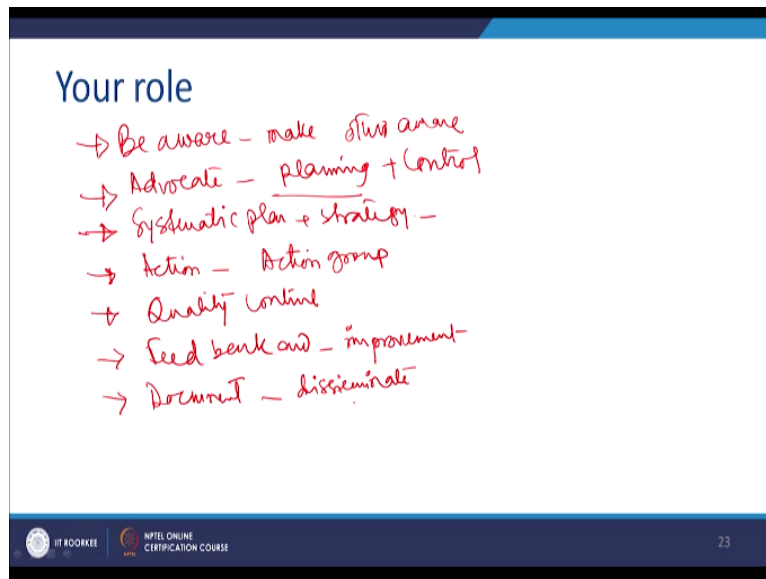 Your role
→ Be aware – make others aware
→ Advocate – planning + control
→ Systematic plan + strategy –
→ Action – Action group
→ Quality control
→ Feed back and – improvement
→ Document – dissiminate
IIT ROORKEE
NPTEL ONLINE
CERTIFICATION COURSE
23